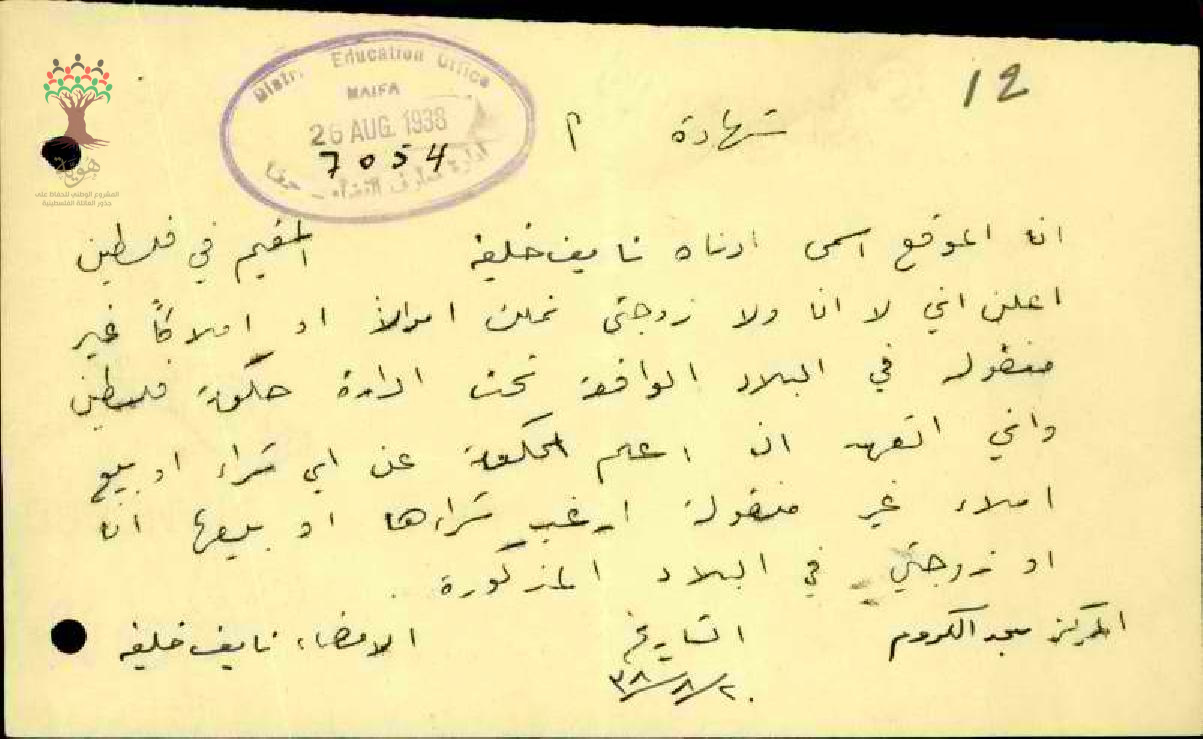 12
Distr. Education Office
HAIFA
26 AUG. 1938
7054
ادارة معارف اللواء - حيفا
شهادة م
هوية
المشروع الوطني للحفاظ على
جذور العائلة الفلسطينية
انا الموقع اسمي ادناه نايف خليفه المقيم في فلسطين
اعلن اني لا انا ولا زوجتي نملك اموالاً او املاكاً غير
منقولة في البلاد الواقعة تحت ادارة حكومة فلسطين
واني اتعهد ان اعلم الحكومة عن اي شراء او بيع
املاك غير منقولة ارغب شراءها او بيعها انا
او زوجتي في البلاد المذكورة .
المركز مجد الكروم التاريخ الامضاء نايف خليفه
٢٠/٨/٣٨